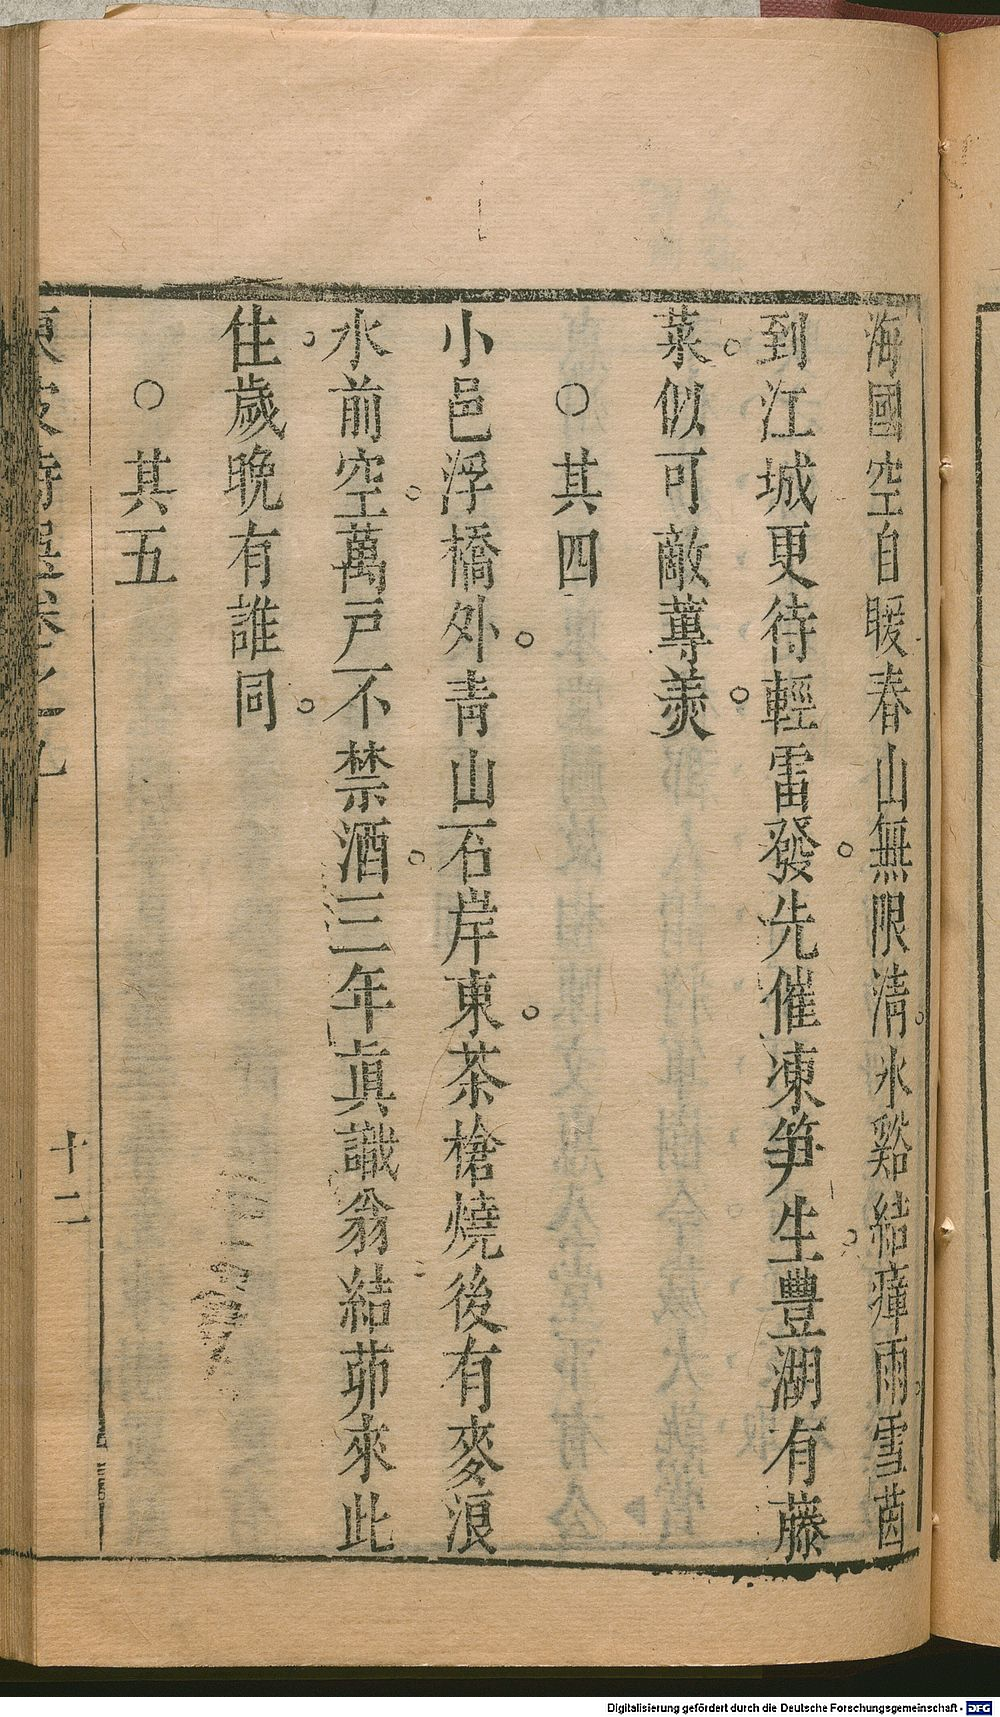 海國空自暖春山無限清氷谿結瘴雨雪菌
到江城更待輕雷發先催凍笋生豐湖有藤
菜似可敵蓴羮
○其四
小邑浮橋外青山石岸東茶槍燒後有麥浪
水前空萬戸不禁酒三年眞識翁結茆來此
住歲晚有誰同
○其五
東坡詩選卷之九
十二
Digitalisierung gefördert durch die Deutsche Forschungsgemeinschaft - DFG